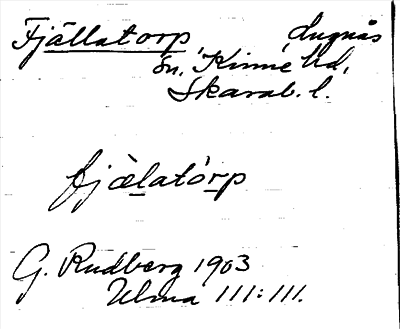 Fjällatorp Lugnås
sn. Kinne hd.
Skarab. l.
fjàlatórp
G. Rudberg 1903
Ulma 111:111.